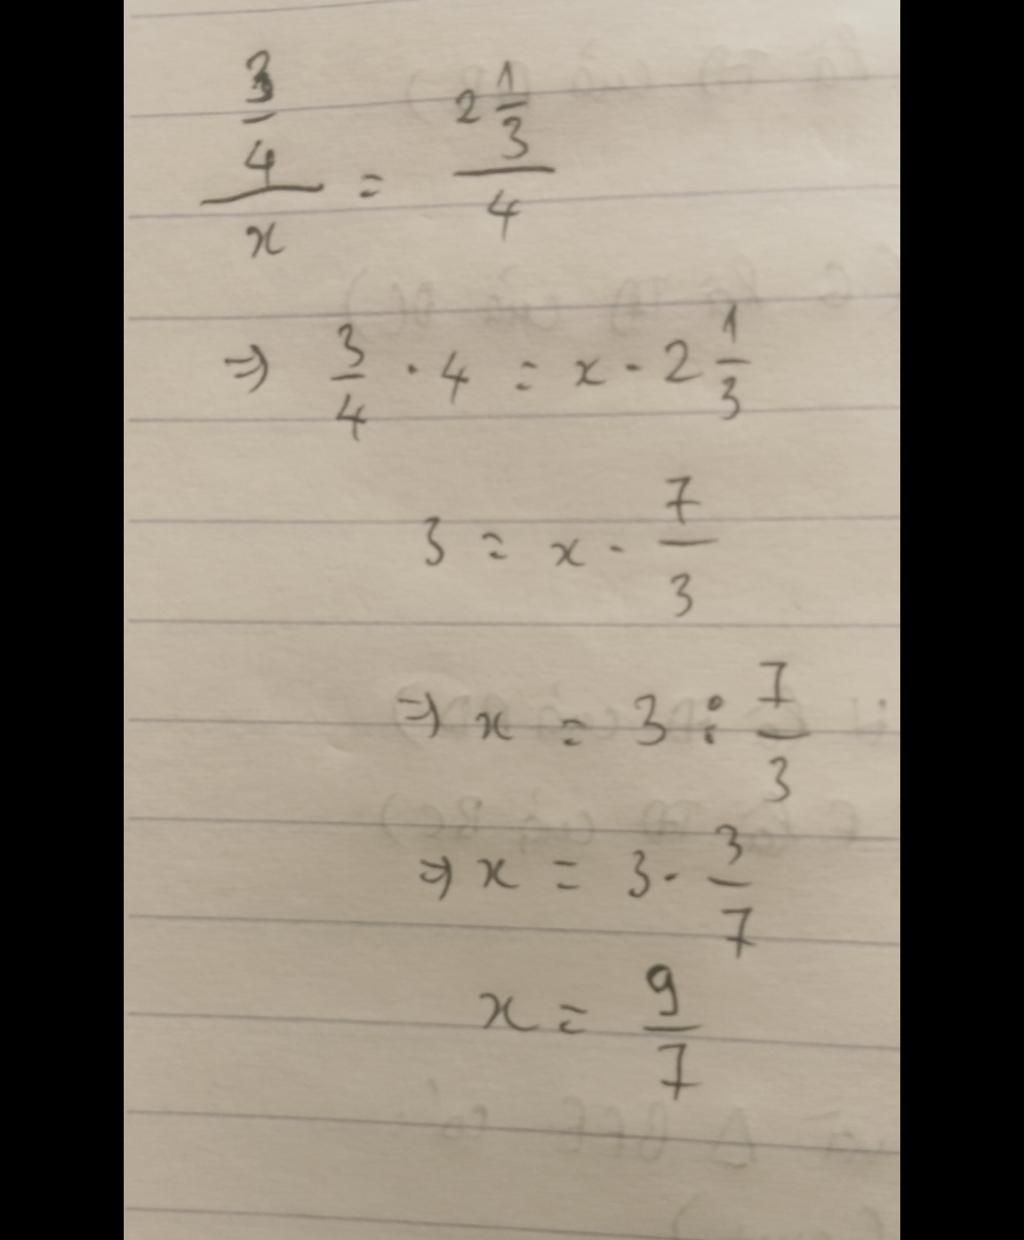 3/4 / x = 2 1/3 / 4
⇒ 3/4 · 4 = x · 2 1/3
3 = x · 7/3
⇒ x = 3 : 7/3
⇒ x = 3 · 3/7
x = 9/7